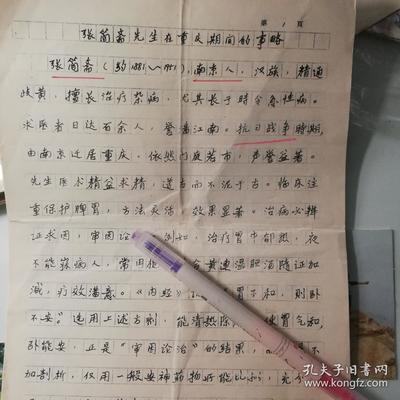 第 1 页
张简斋先生在重庆期间的事略
张简斋(约1881〜1951),南京人,汉族,精通
岐黄,擅长治疗杂病,尤其长于时令急性病。
求医者日达百余人,誉满江南。抗日战争时期,
由南京迁居重庆,依然门庭若市,声誉益著。
先生医术精益求精,遵古而不泥于古。临床注
重保护脾胃,方法灵活,效果显著。治病必辨
证求因,审因论 例如,治疗胃中郁热,夜
不能寐病人,常用 合黄连温胆汤随证加
减,疗效满意。《内经》 胃不和,则卧
不安"。选用上述方剂,能清热除 使胃气和,
卧能安,正是"审因论治"的结果, 不
加剖析,仅用一般安神药物所能比拟,充
孔夫子旧书网